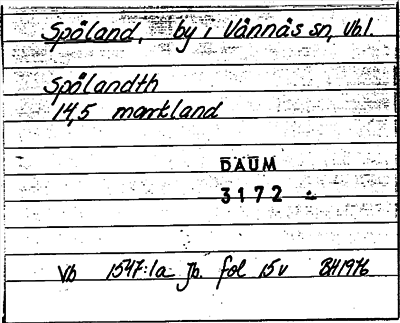 Spåland, by i Vännäs sn, Vbl.
Spålandth
14,5 markland
DAUM
3172
Vb 1547:1a Jb. fol 15v BH1976